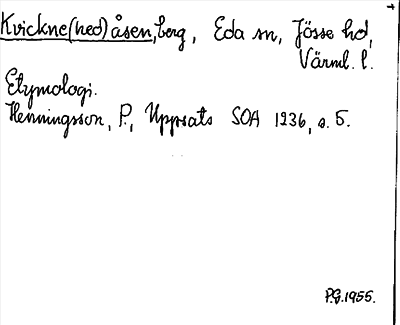 Kvickne(ned)åsen, berg, Eda sn, Jösse hd,
Värml. l.
Etymologi.
Henningsson, P., Uppsats SOA 1936, s. 5.
P.G. 1955.